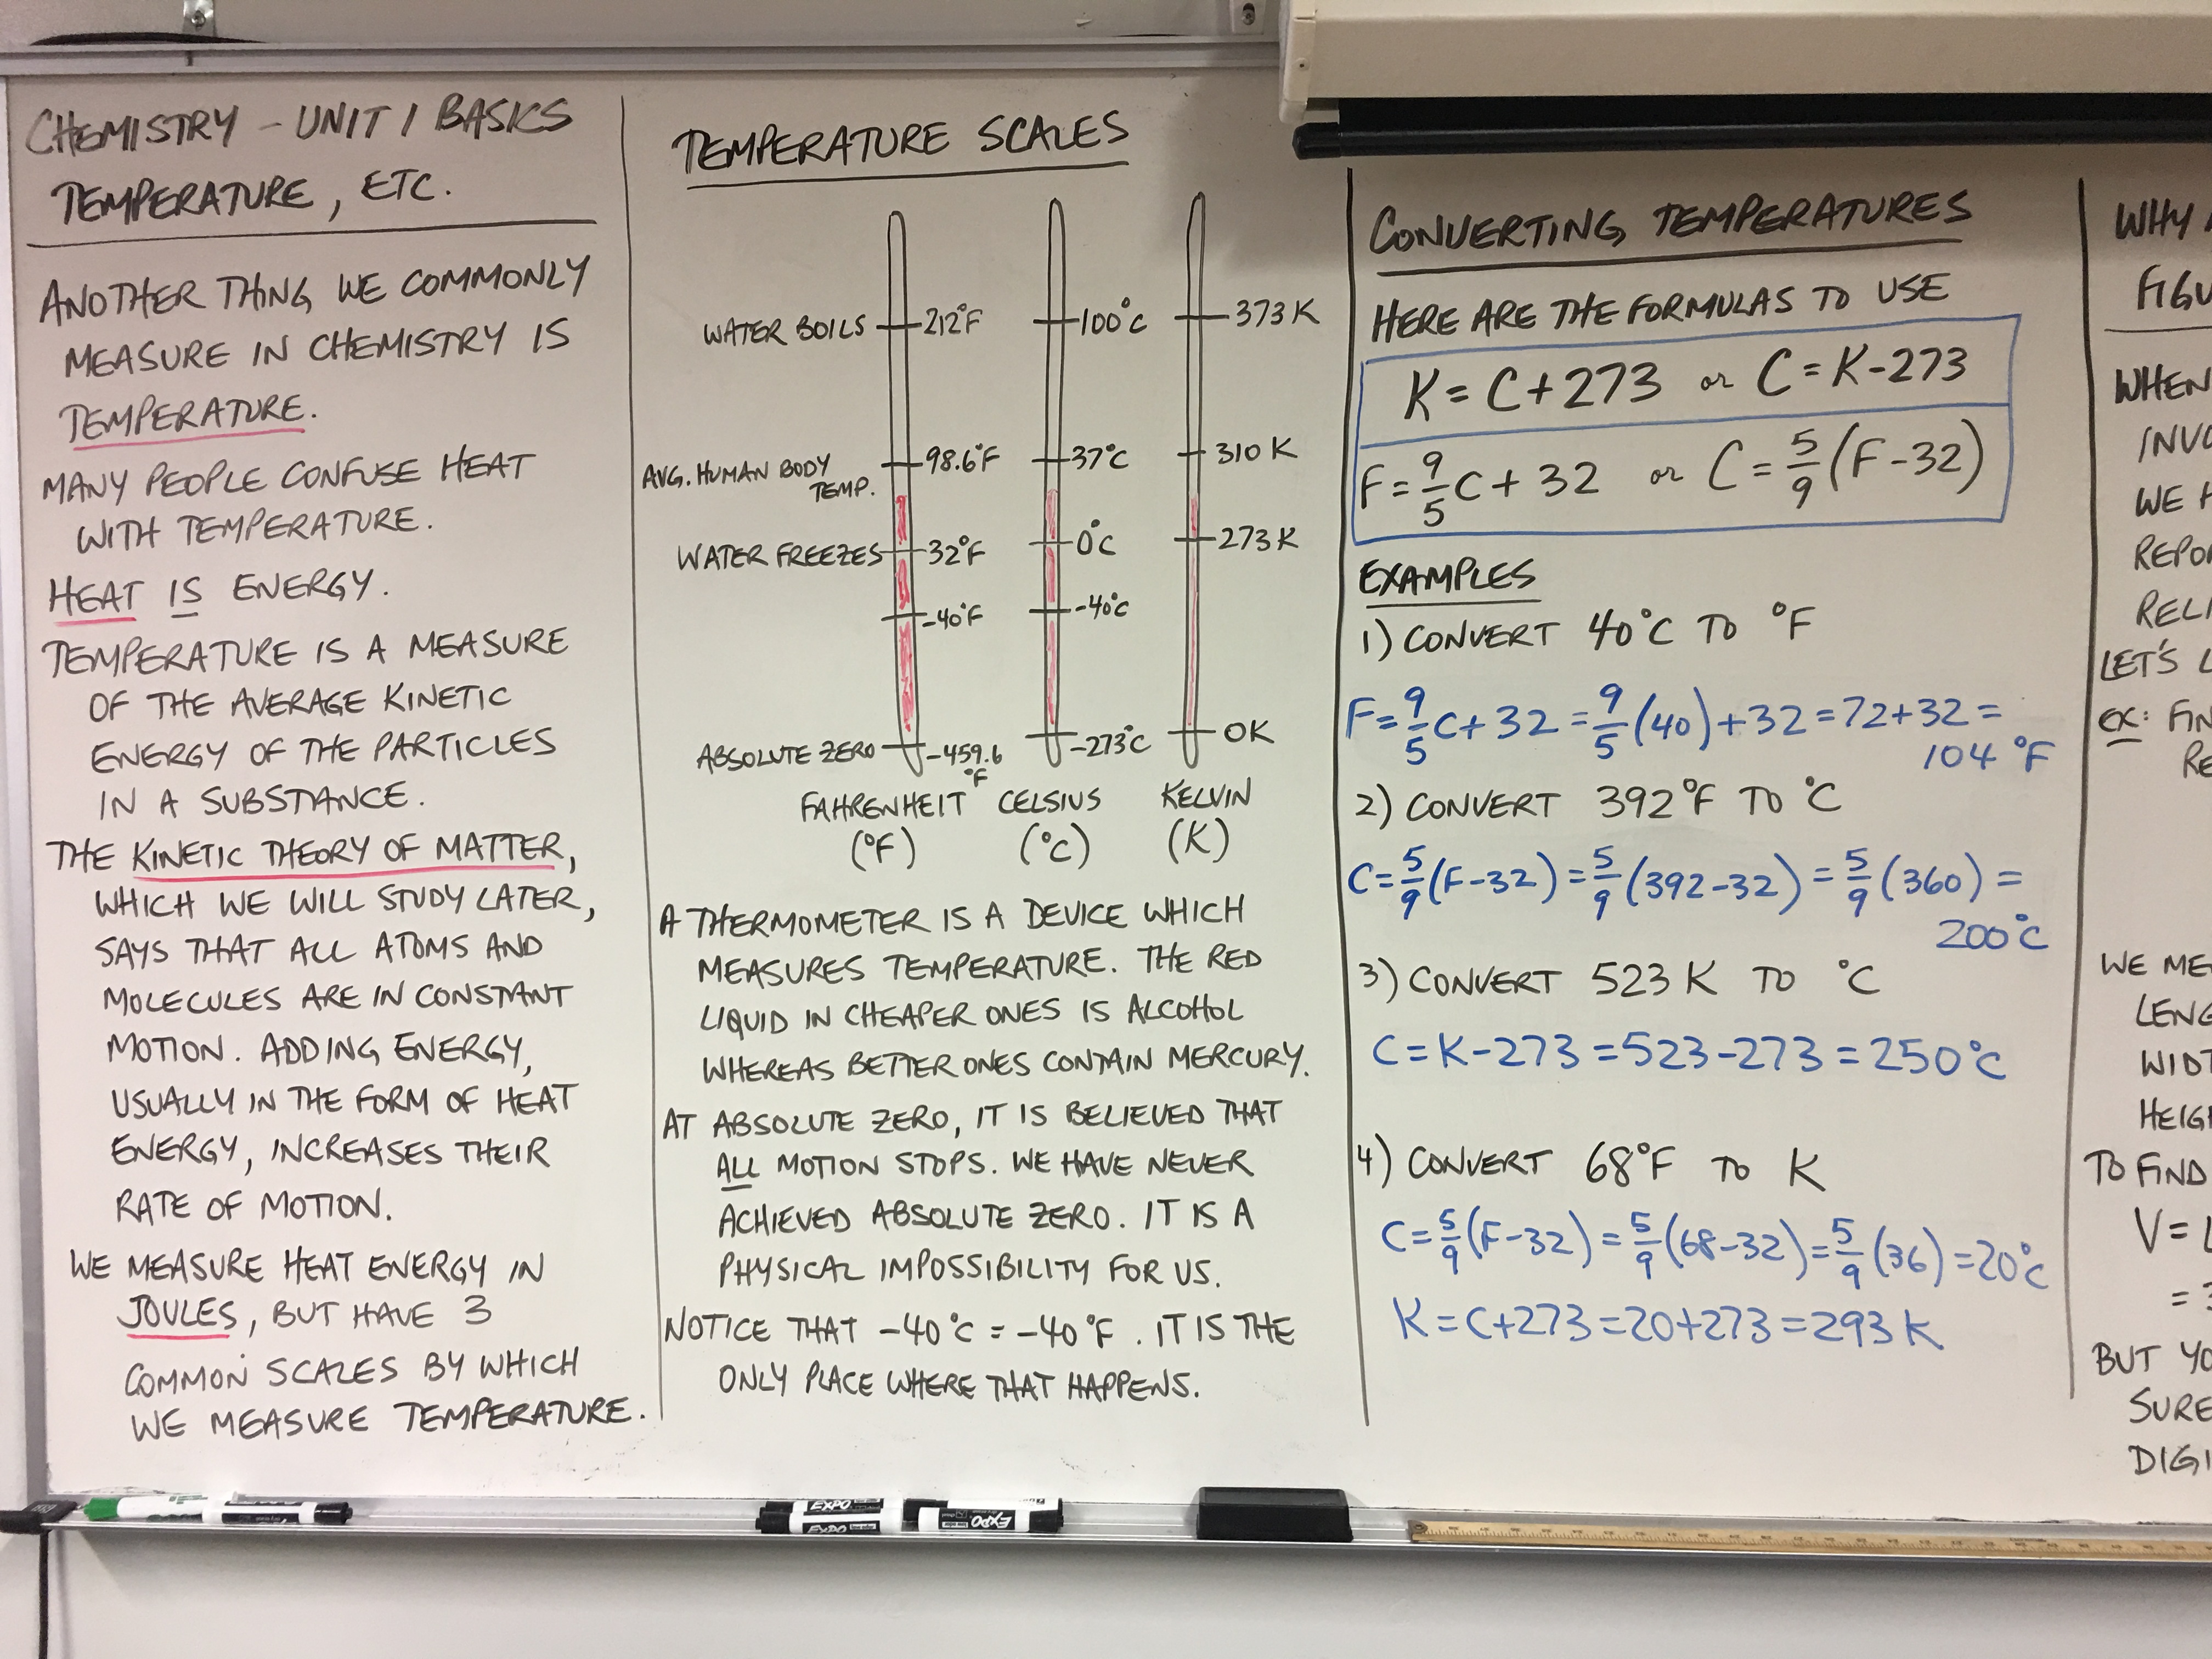 CHEMISTRY - UNIT 1 BASICS
TEMPERATURE, ETC.
ANOTHER THING WE COMMONLY
MEASURE IN CHEMISTRY IS
TEMPERATURE.
MANY PEOPLE CONFUSE HEAT
WITH TEMPERATURE.
HEAT IS ENERGY.
TEMPERATURE IS A MEASURE
OF THE AVERAGE KINETIC
ENERGY OF THE PARTICLES
IN A SUBSTANCE.
THE KINETIC THEORY OF MATTER,
WHICH WE WILL STUDY LATER,
SAYS THAT ALL ATOMS AND
MOLECULES ARE IN CONSTANT
MOTION. ADDING ENERGY,
USUALLY IN THE FORM OF HEAT
ENERGY, INCREASES THEIR
RATE OF MOTION.
WE MEASURE HEAT ENERGY IN
JOULES, BUT HAVE 3
COMMON SCALES BY WHICH
WE MEASURE TEMPERATURE.
TEMPERATURE SCALES
WATER BOILS 212°F 100°C 373 K
AVG. HUMAN BODY TEMP. 98.6°F 37°C 310 K
WATER FREEZES 32°F 0°C 273 K
-40°F -40°C
ABSOLUTE ZERO -459.6 °F -273°C 0K
FAHRENHEIT CELSIUS KELVIN
(°F) (°C) (K)
A THERMOMETER IS A DEVICE WHICH
MEASURES TEMPERATURE. THE RED
LIQUID IN CHEAPER ONES IS ALCOHOL
WHEREAS BETTER ONES CONTAIN MERCURY.
AT ABSOLUTE ZERO, IT IS BELIEVED THAT
ALL MOTION STOPS. WE HAVE NEVER
ACHIEVED ABSOLUTE ZERO. IT IS A
PHYSICAL IMPOSSIBILITY FOR US.
NOTICE THAT -40°C = -40°F. IT IS THE
ONLY PLACE WHERE THAT HAPPENS.
CONVERTING TEMPERATURES
HERE ARE THE FORMULAS TO USE
K = C + 273 or C = K - 273
F = 9/5 C + 32 or C = 5/9 (F - 32)
EXAMPLES
1) CONVERT 40°C TO °F
F = 9/5 C + 32 = 9/5 (40) + 32 = 72 + 32 =
104 °F
2) CONVERT 392°F TO °C
C = 5/9 (F - 32) = 5/9 (392 - 32) = 5/9 (360) =
200°C
3) CONVERT 523 K TO °C
C = K - 273 = 523 - 273 = 250°C
4) CONVERT 68°F TO K
C = 5/9 (F - 32) = 5/9 (68 - 32) = 5/9 (36) = 20°C
K = C + 273 = 20 + 273 = 293 K
WHY
FIGU
WHEN
INVO
WE H
REPO
RELI
LET'S L
EX: FIN
RE
WE ME
LENG
WIDT
HEIGH
TO FIND
V = L
= 3
BUT YO
SURE
DIGI
EXPO
EXPO
EXPO